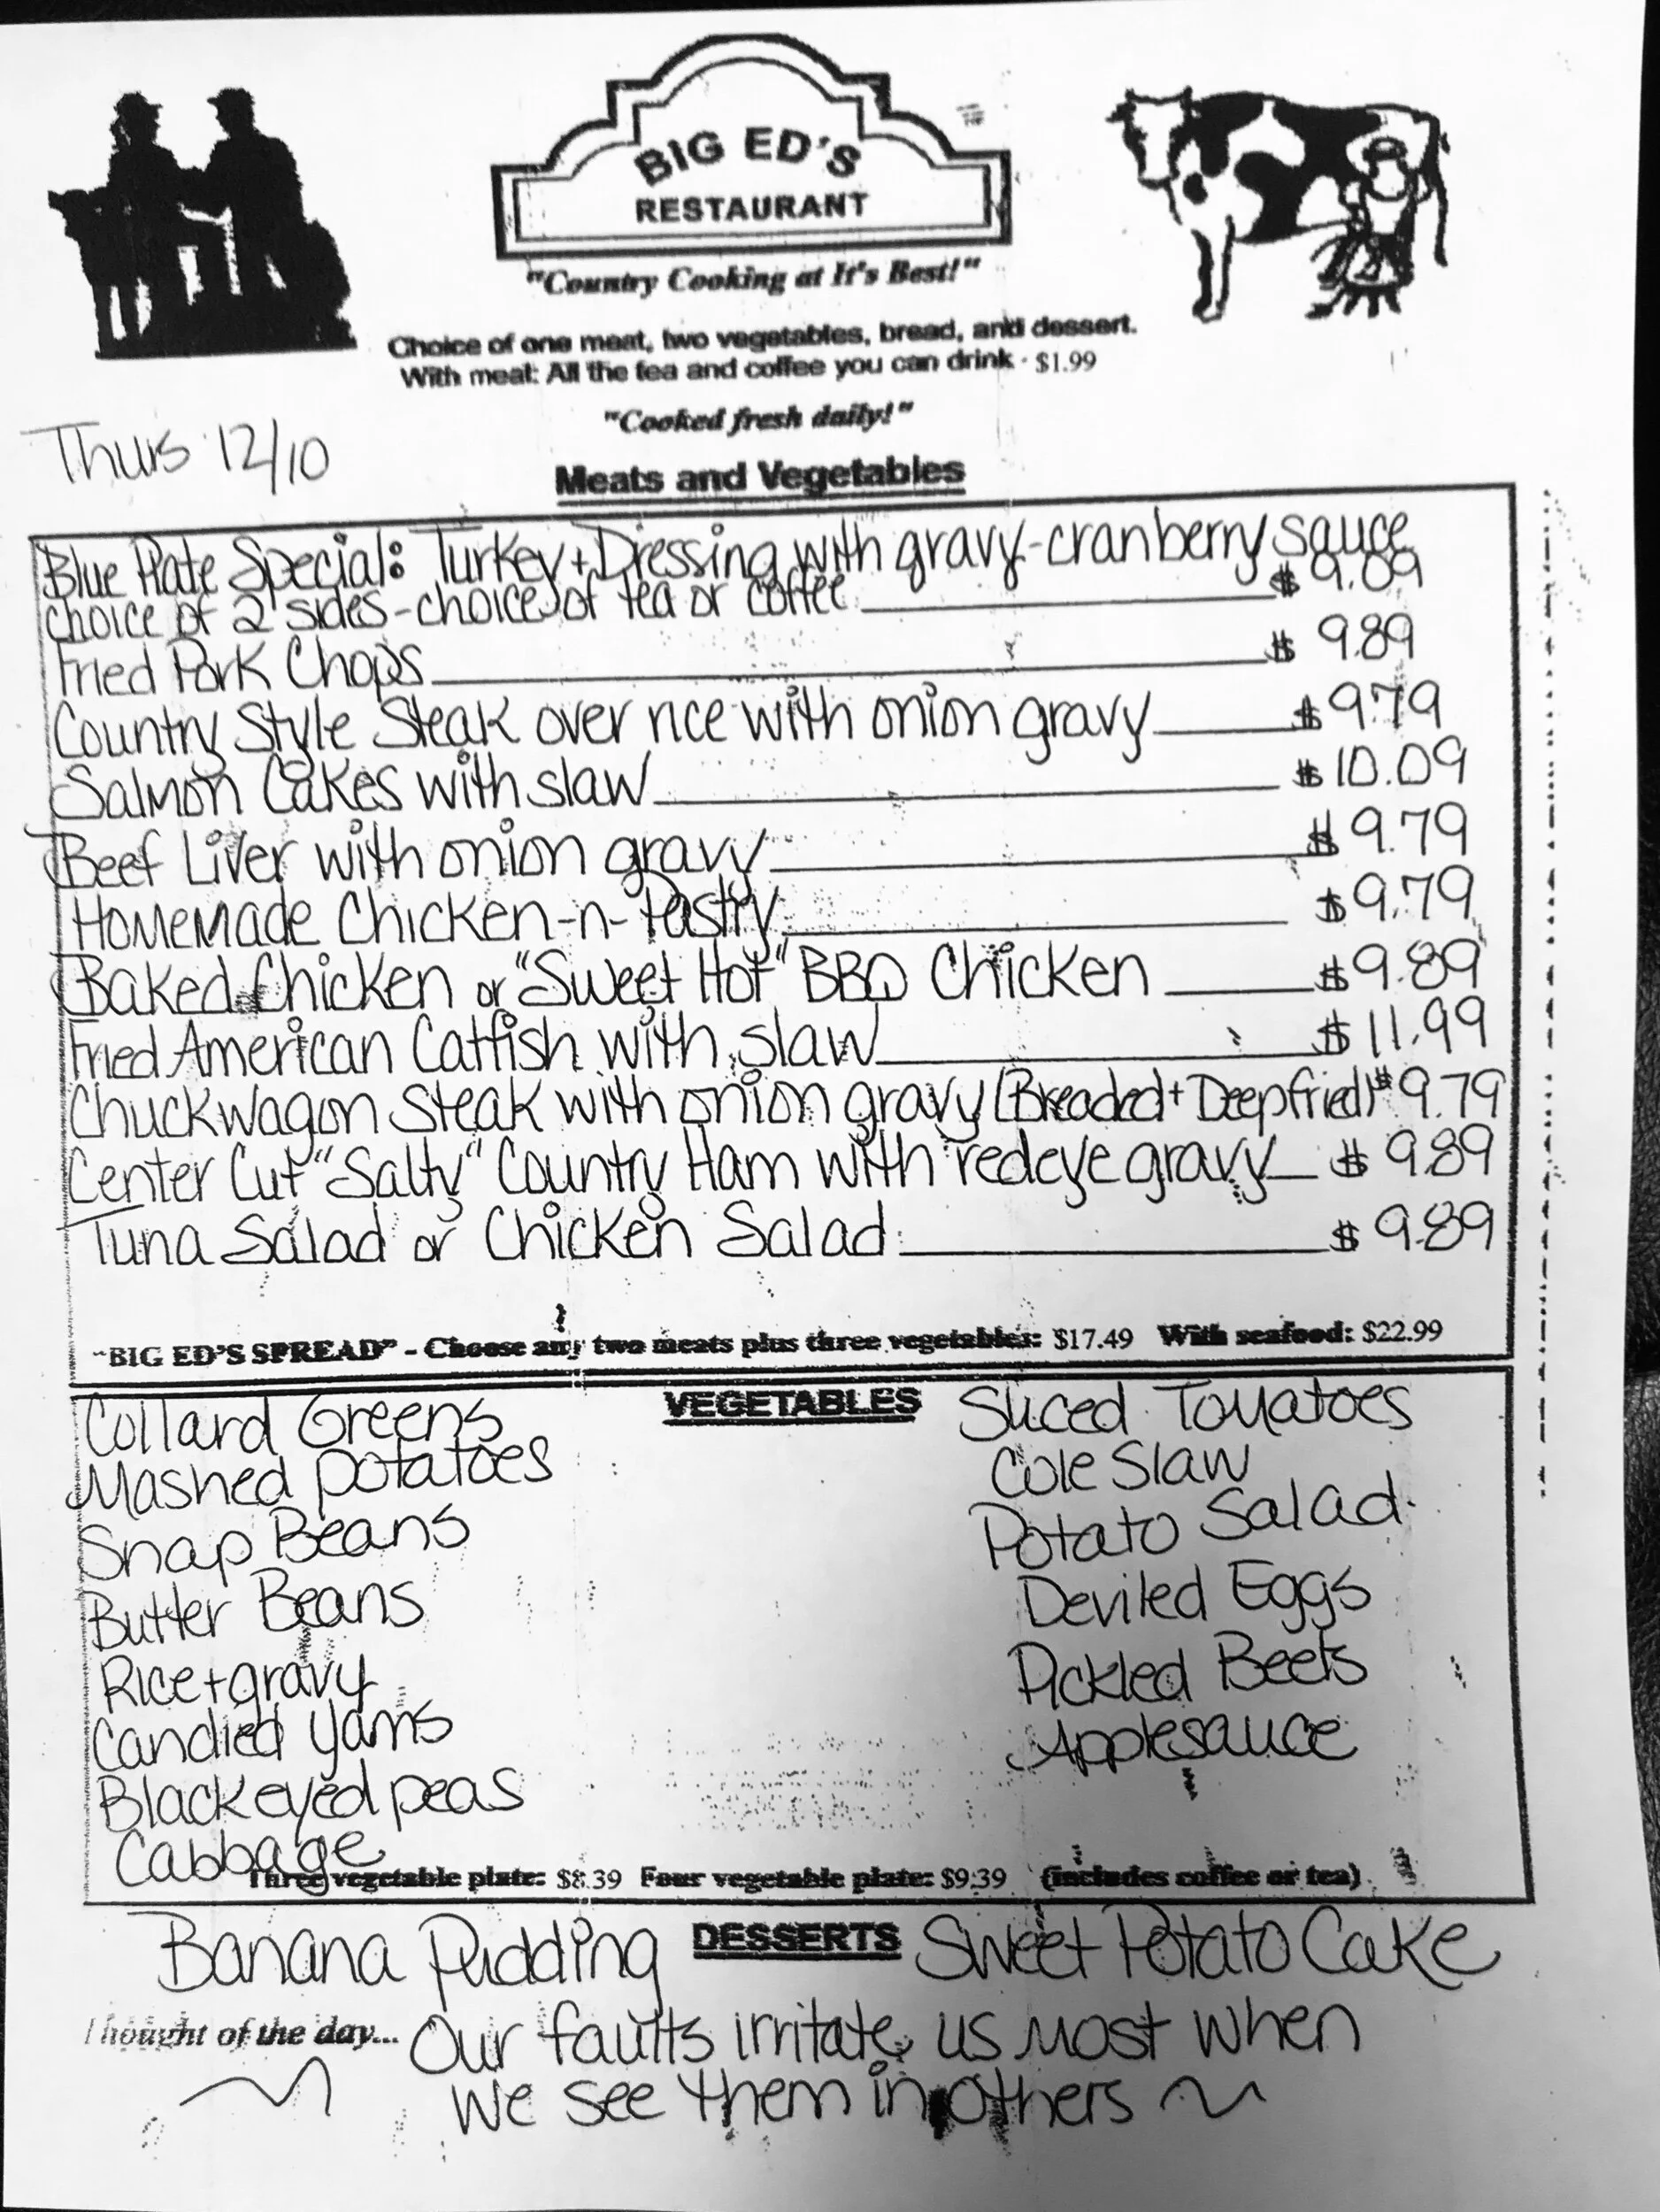 BIG ED'S
RESTAURANT
"Country Cooking at It's Best!"
Choice of one meat, two vegetables, bread, and dessert.
With meat: All the tea and coffee you can drink - $1.99
"Cooked fresh daily!"
Thurs 12/10
Meats and Vegetables
Blue Plate Special: Turkey + Dressing with gravy-cranberry sauce
choice of 2 sides - choice of tea or coffee $ 9.09
Fried Pork Chops $ 9.89
Country Style Steak over rice with onion gravy $ 9.79
Salmon Cakes with slaw $ 10.09
Beef Liver with onion gravy $ 9.79
Homemade Chicken-n-Pastry $ 9.79
Baked Chicken or "Sweet Hot" BBQ Chicken $ 9.89
Fried American Catfish with slaw $ 11.99
Chuckwagon Steak with onion gravy (Breaded + Deep fried) $ 9.79
Center Cut "Salty" Country Ham with redeye gravy $ 9.89
Tuna Salad or Chicken Salad $ 9.89
"BIG ED'S SPREAD" - Choose any two meats plus three vegetables: $17.49 With seafood: $22.99
VEGETABLES
Collard Greens
Mashed potatoes
Snap Beans
Butter Beans
Rice + gravy
Candied yams
Blackeyed peas
Cabbage
Sliced Tomatoes
Cole Slaw
Potato Salad
Deviled Eggs
Pickled Beets
Applesauce
Three vegetable plate: $8.39 Four vegetable plate: $9.39 (includes coffee or tea)
Banana Pudding DESSERTS Sweet Potato Cake
Thought of the day... Our faults irritate us most when
we see them in others